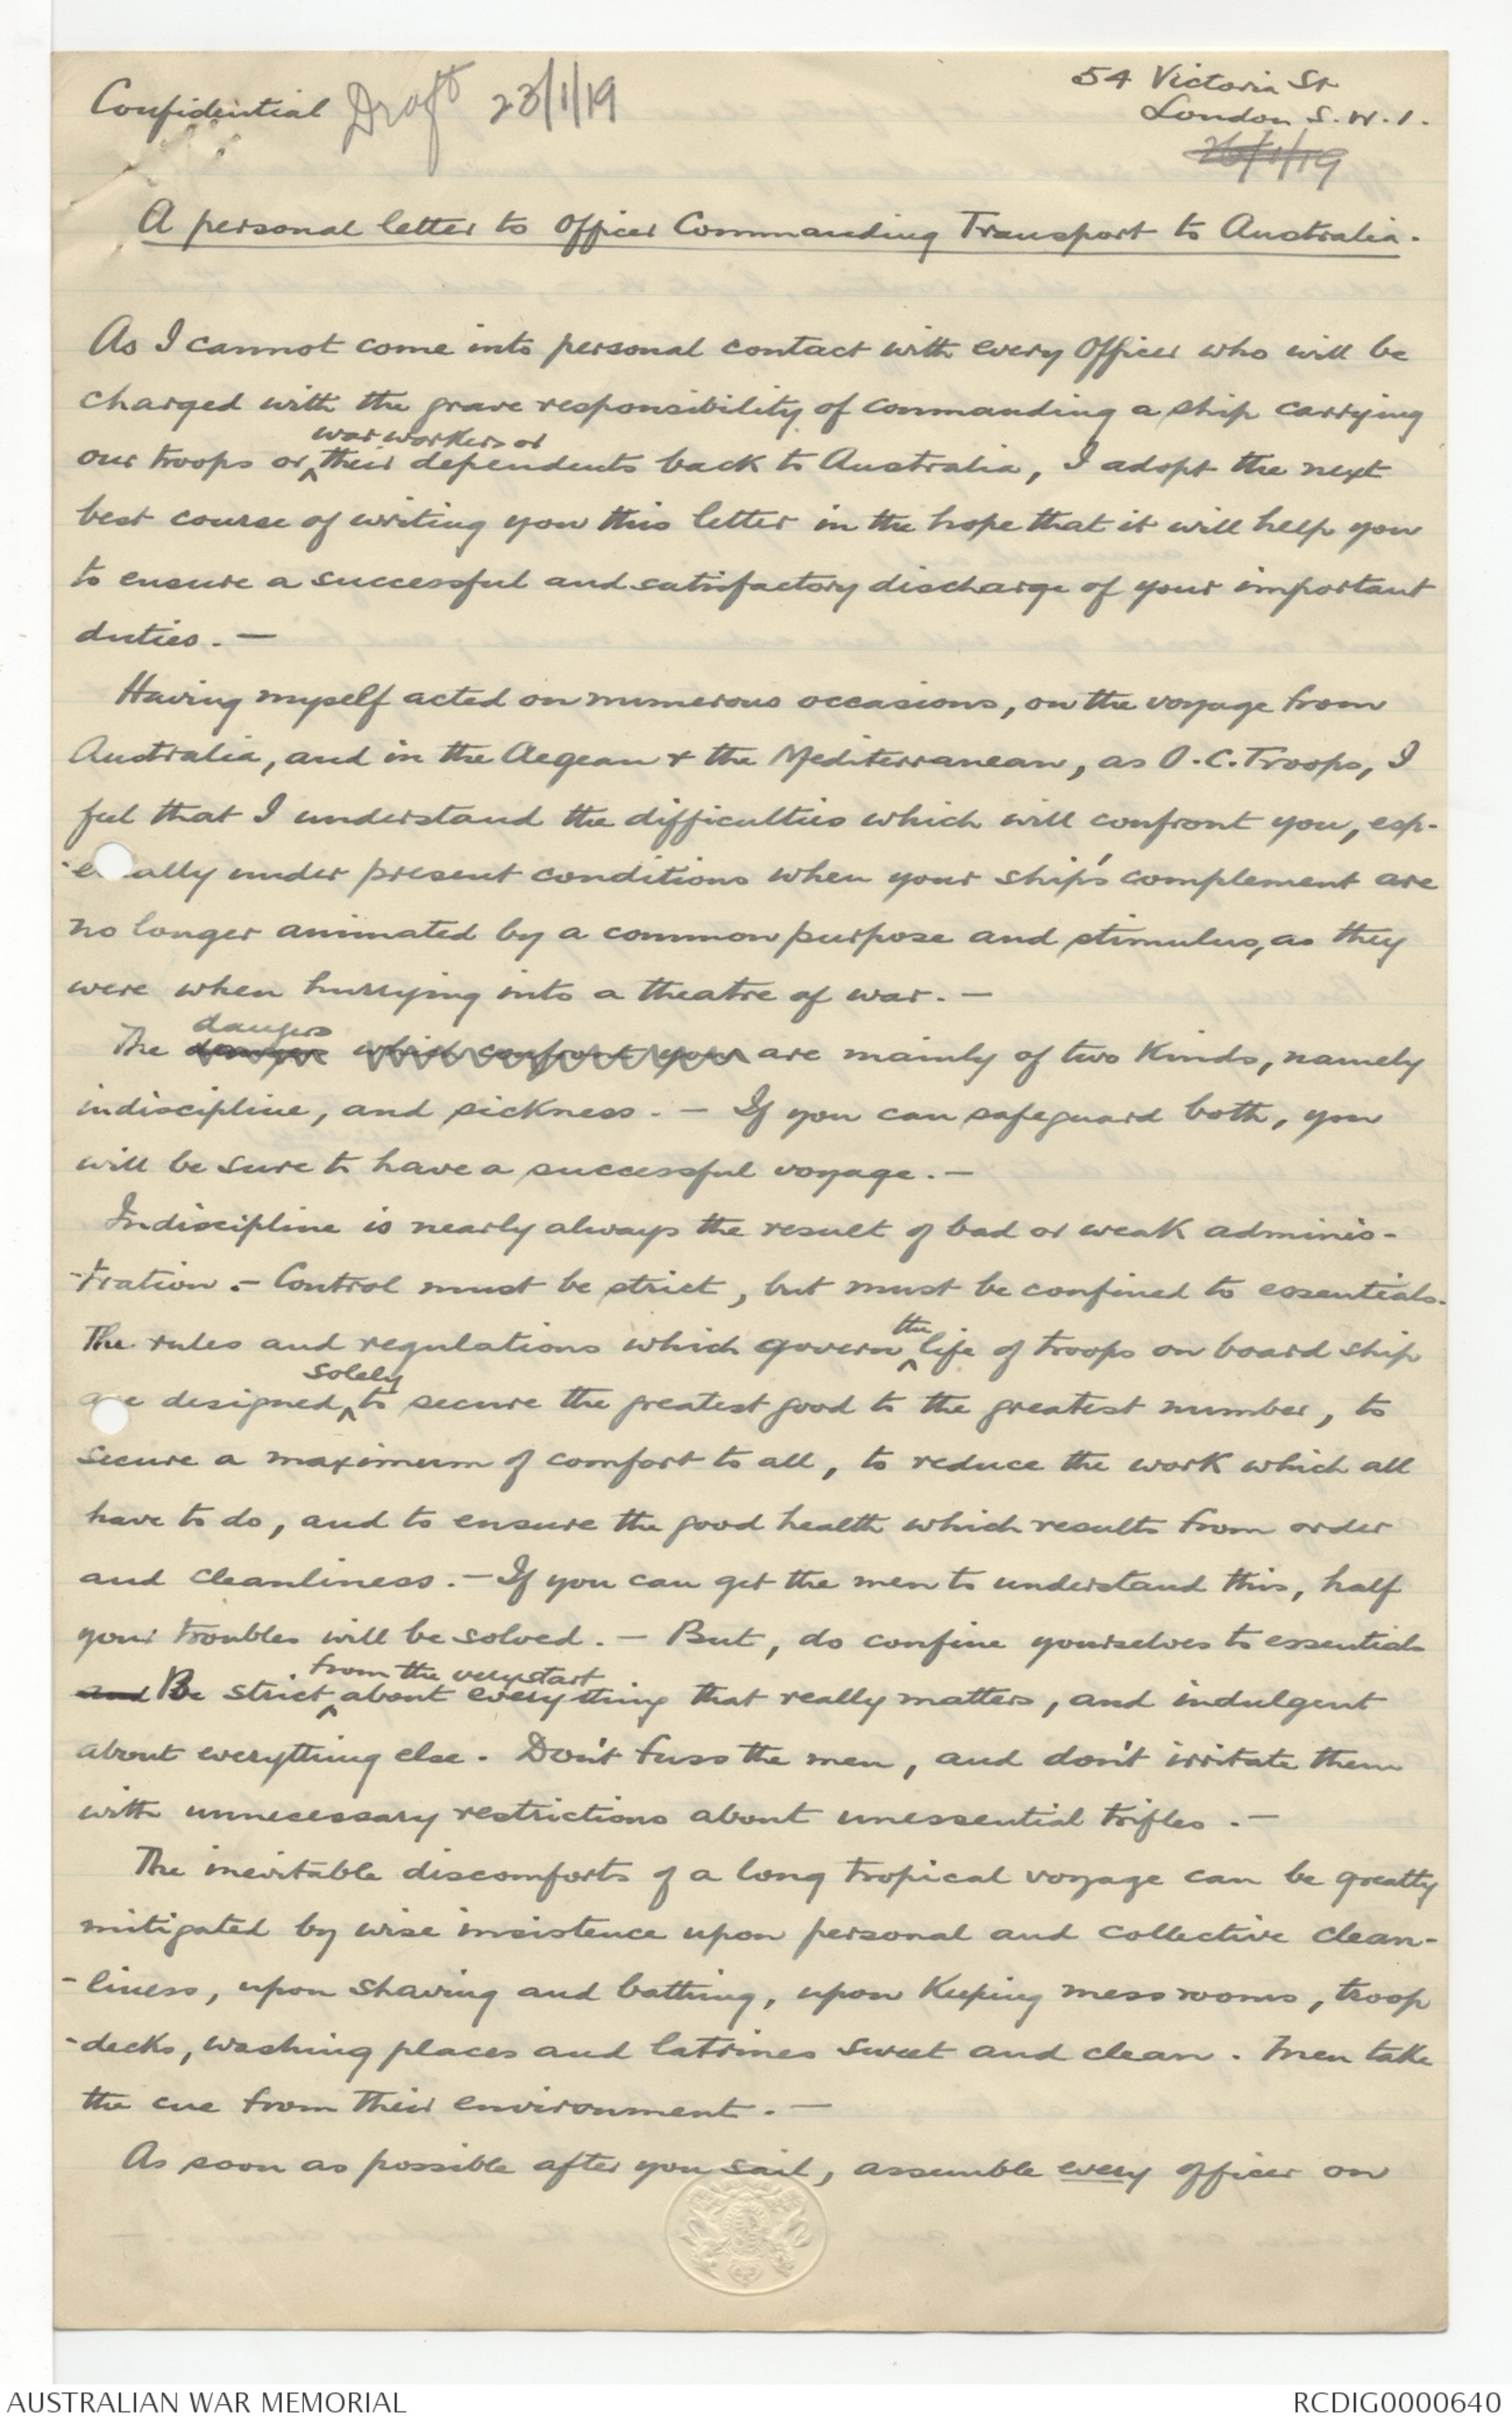 Confidential Draft 23/1/19
54 Victoria St
London S.W.1.
26/1/19
A personal letter to Officer Commanding Transport to Australia.
As I cannot come into personal contact with every Officer who will be
charged with the grave responsibility of commanding a ship carrying
war workers or
our troops or ^ their dependents back to Australia, I adopt the next
best course of writing you this letter in the hope that it will help you
to ensure a successful and satisfactory discharge of your important
duties. —
Having myself acted on numerous occasions, on the voyage from
Australia, and in the Aegean & the Mediterranean, as O.C. Troops, I
feel that I understand the difficulties which will confront you, esp-
-ecially under present conditions when your ship's complement are
no longer animated by a common purpose and stimulus, as they
were when hurrying into a theatre of war. —
dangers
The danger which confront you are mainly of two kinds, namely
indiscipline, and sickness. — If you can safeguard both, you
will be sure to have a successful voyage. —
Indiscipline is nearly always the result of bad or weak adminis-
-tration. — Control must be strict, but must be confined to essentials.
the
The rules and regulations which govern ^ life of troops on board ship
solely
are designed ^ to secure the greatest good to the greatest number, to
secure a maximum of comfort to all, to reduce the work which all
have to do, and to ensure the good health which results from order
and cleanliness. — If you can get the men to understand this, half
your troubles will be solved. — But, do confine yourselves to essentials
from the very start
and Be strict ^ about everything that really matters, and indulgent
about everything else. Don't fuss the men, and don't irritate them
with unnecessary restrictions about unessential trifles. —
The inevitable discomforts of a long tropical voyage can be greatly
mitigated by wise insistence upon personal and collective clean-
-liness, upon shaving and bathing, upon keeping mess rooms, troop
-decks, washing places and latrines sweet and clean. Men take
the cue from their environment. —
As soon as possible after you sail, assemble every officer on
AUSTRALIAN WAR MEMORIAL
RCDIG0000640